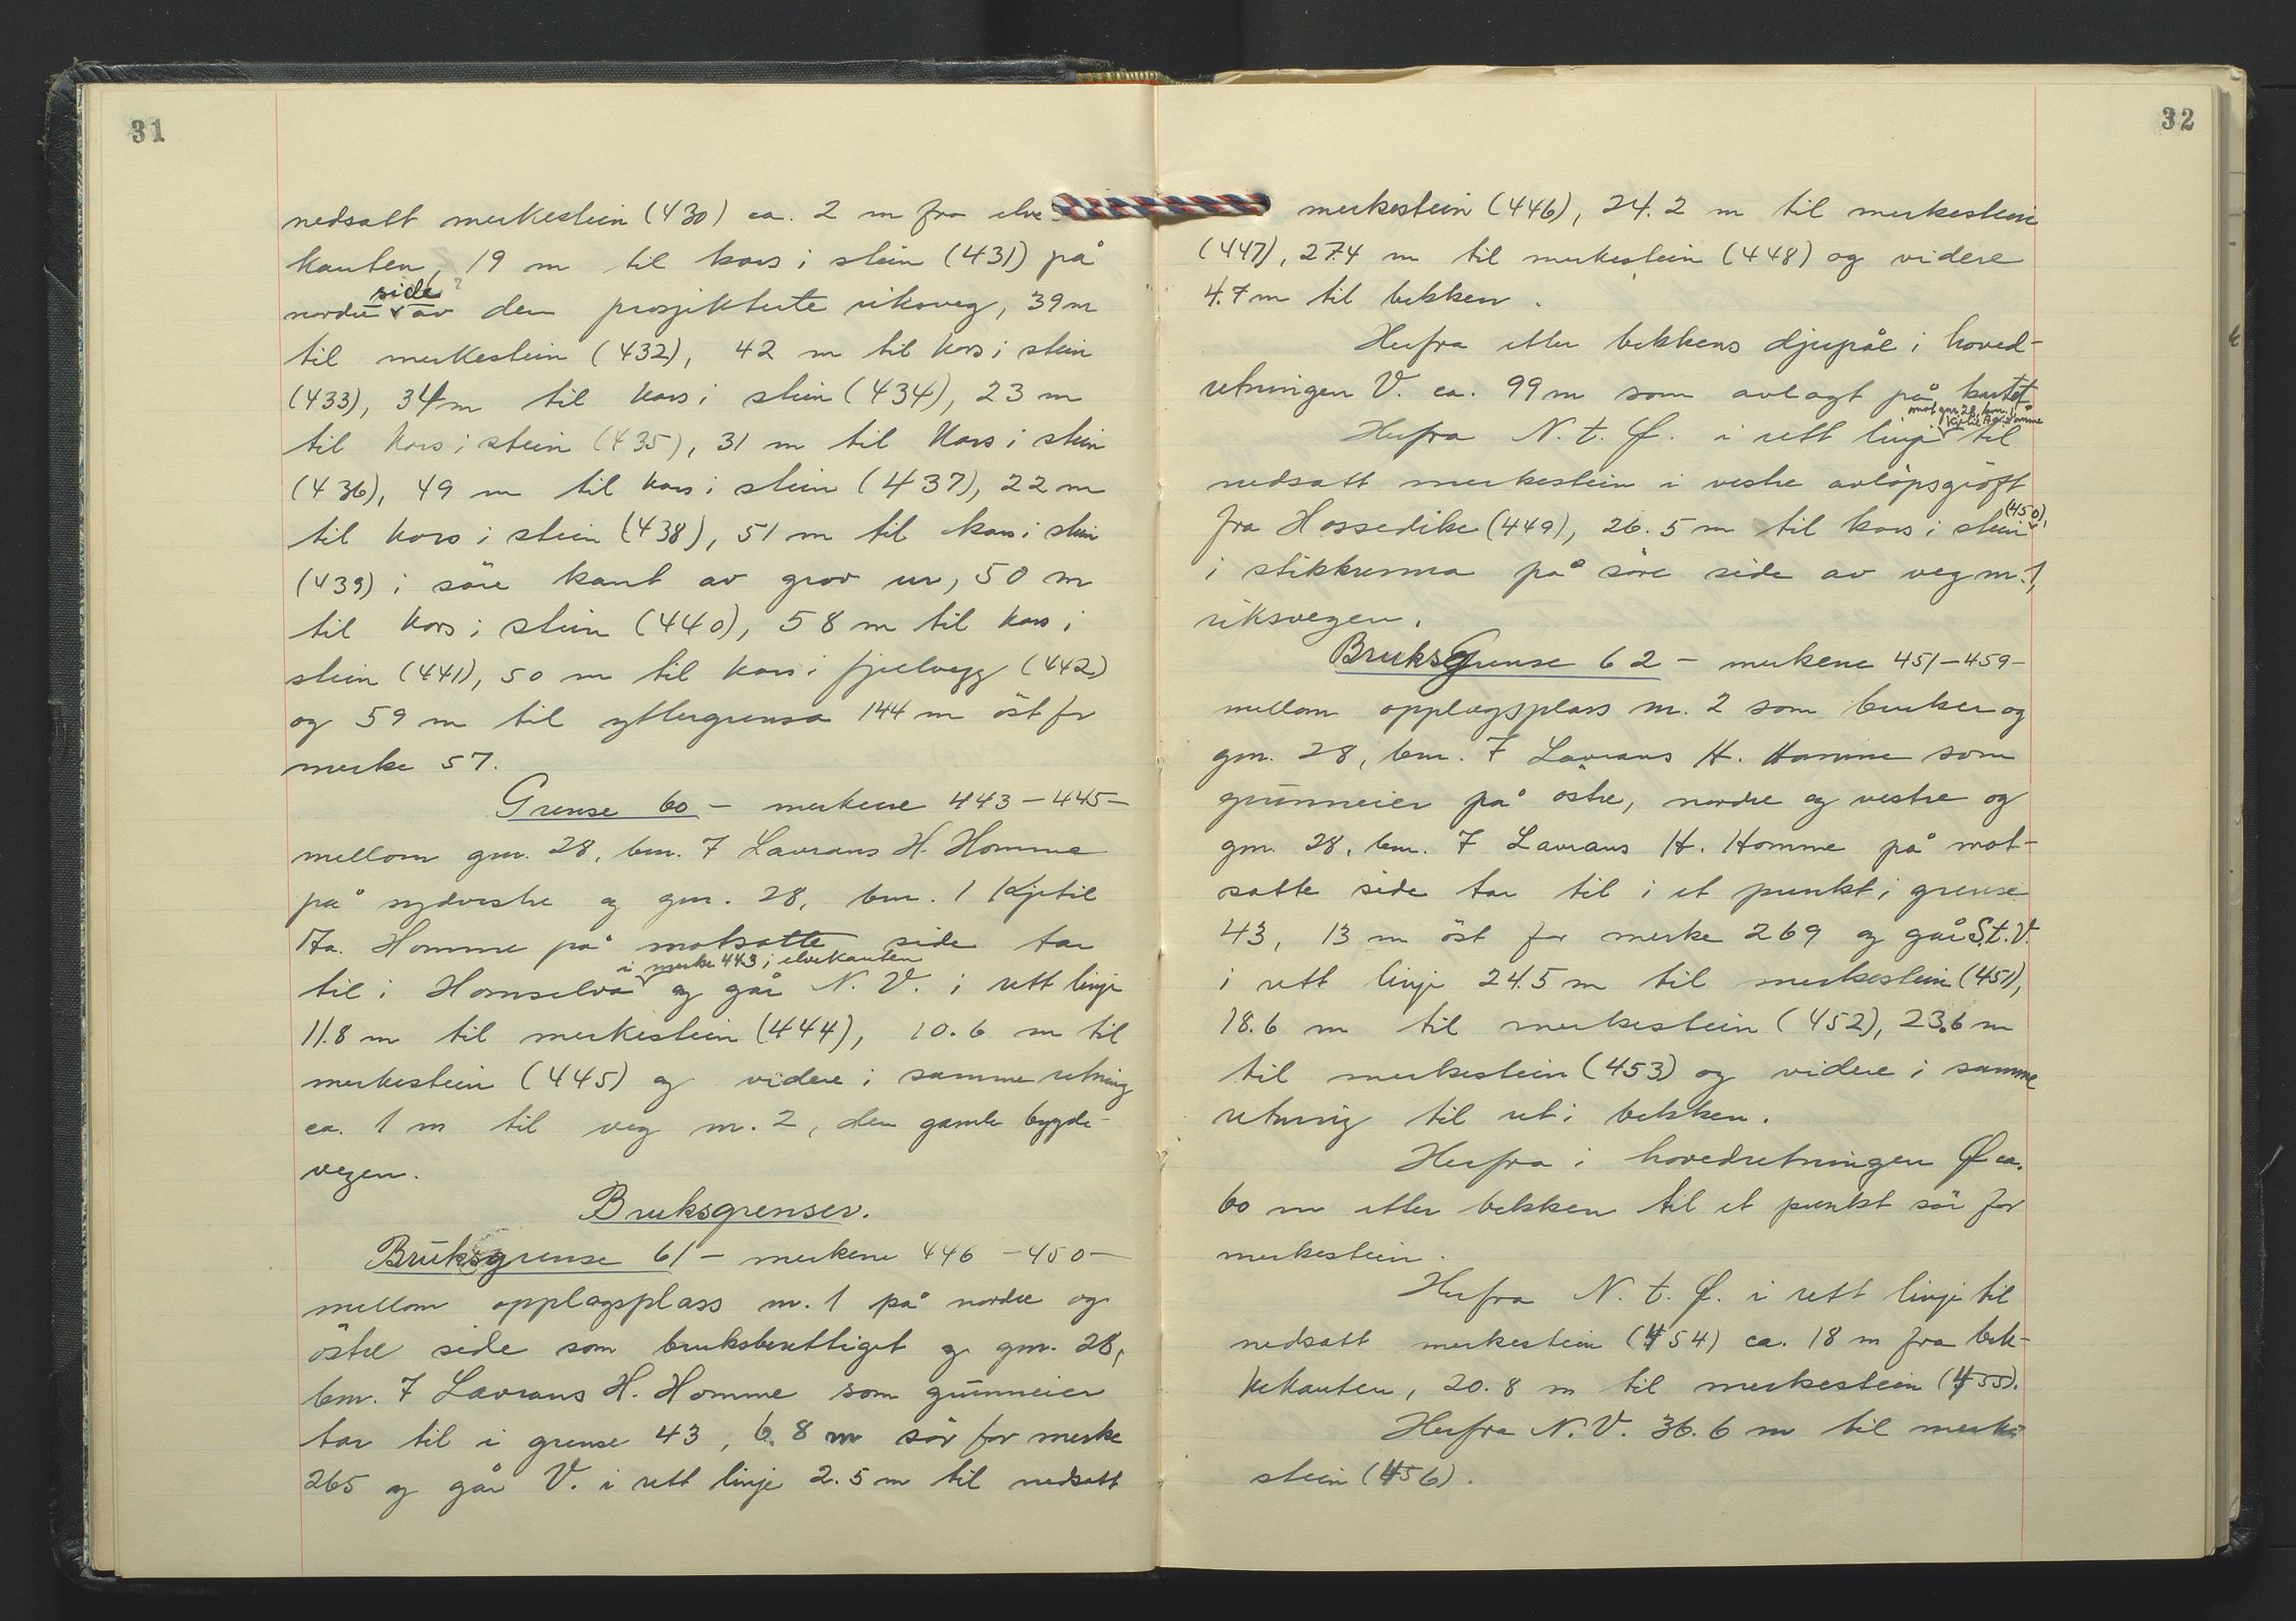 31
nedsatt merkestein (430) ca. 2 m fra elve
kanten, 19 m til kors i stein (431) på
side
nordre av den prosjekterte riksveg, 39 m
til merkestein (432), 42 m til kors i stein
(433), 34 m til kors i stein (434), 23 m
til kors i stein (435), 31 m til kors i stein
(436), 49 m til kors i stein (437), 22 m
til kors i stein (438), 51 m til kors i stein
(439) i söre kant av grov ur, 50 m
til kors i stein (440), 58 m til kors i
stein (441), 50 m til kors i fjellvegg (442)
og 59 m til yttergrensa 144 m öst for
merke 57.
Grense 60 - merkene 443-445-
mellom gnr. 28, bnr. 7 Lavrans H. Homme
på sydvestre og gnr. 28, bnr. 1 Kjetil
Aa. Homme på motsatte side tar
i merke 443 i elvekanten
til i Homselva og går N. V. i rett linje
11.8 m til merkestein (444), 10.6 m til
merkestein (445) og videre i samme retning
ca. 1 m til veg nr. 2, den gamle bygde-
vegen.
Bruksgrenser.
Bruksgrense 61 - merkene 446 - 450 -
mellom opplagsplass nr. 1 på nordre og
östre side som bruksberettiget og gnr. 28,
bnr. 7 Lavrans H. Homme som grunneier
tar til i grense 43, 6.8 m sör for merke
265 og går V. i rett linje 2.5 m til nedsatt
32
merkestein (446), 24.2 m til merkestein
(447), 27.4 m til merkestein (448) og videre
4.7 m til bekken.
Herfra etter bekkens djupål i hoved-
retningen V. ca. 99 m som avlagt på kartet
mot gnr. 28, bnr. 1
Kjetil Aa. Homme
Herfra N. t. Ø. i rett linje til
nedsatt merkestein i vestre avlöpsgröft
fra Hossedike (449), 26.5 m til kors i stein
(450),
i stikkrenna på söre side av veg nr. 1,
riksvegen.
Bruksgrense 62 - merkene 451-459-
mellom opplagsplass nr. 2 som bruker og
gnr. 28, bnr. 7 Lavrans H. Homme som
grunneier på östre, nordre og vestre og
gnr. 28, bnr. 7 Lavrans H. Homme på mot-
satte side tar til i et punkt i grense
43, 13 m öst for merke 269 og går S.t.V.
i rett linje 24.5 m til merkestein (451),
18.6 m til merkestein (452), 23.6 m
til merkestein (453) og videre i samme
retning til ut i bekken.
Herfra i hovedretningen Ø ca.
60 m etter bekken til et punkt sör for
merkestein.
Herfra N. t. Ø. i rett linje til
nedsatt merkestein (454) ca. 18 m fra bek-
kekanten, 20.8 m til merkestein (455).
Herfra N. V. 36.6 m til merke
stein (456).